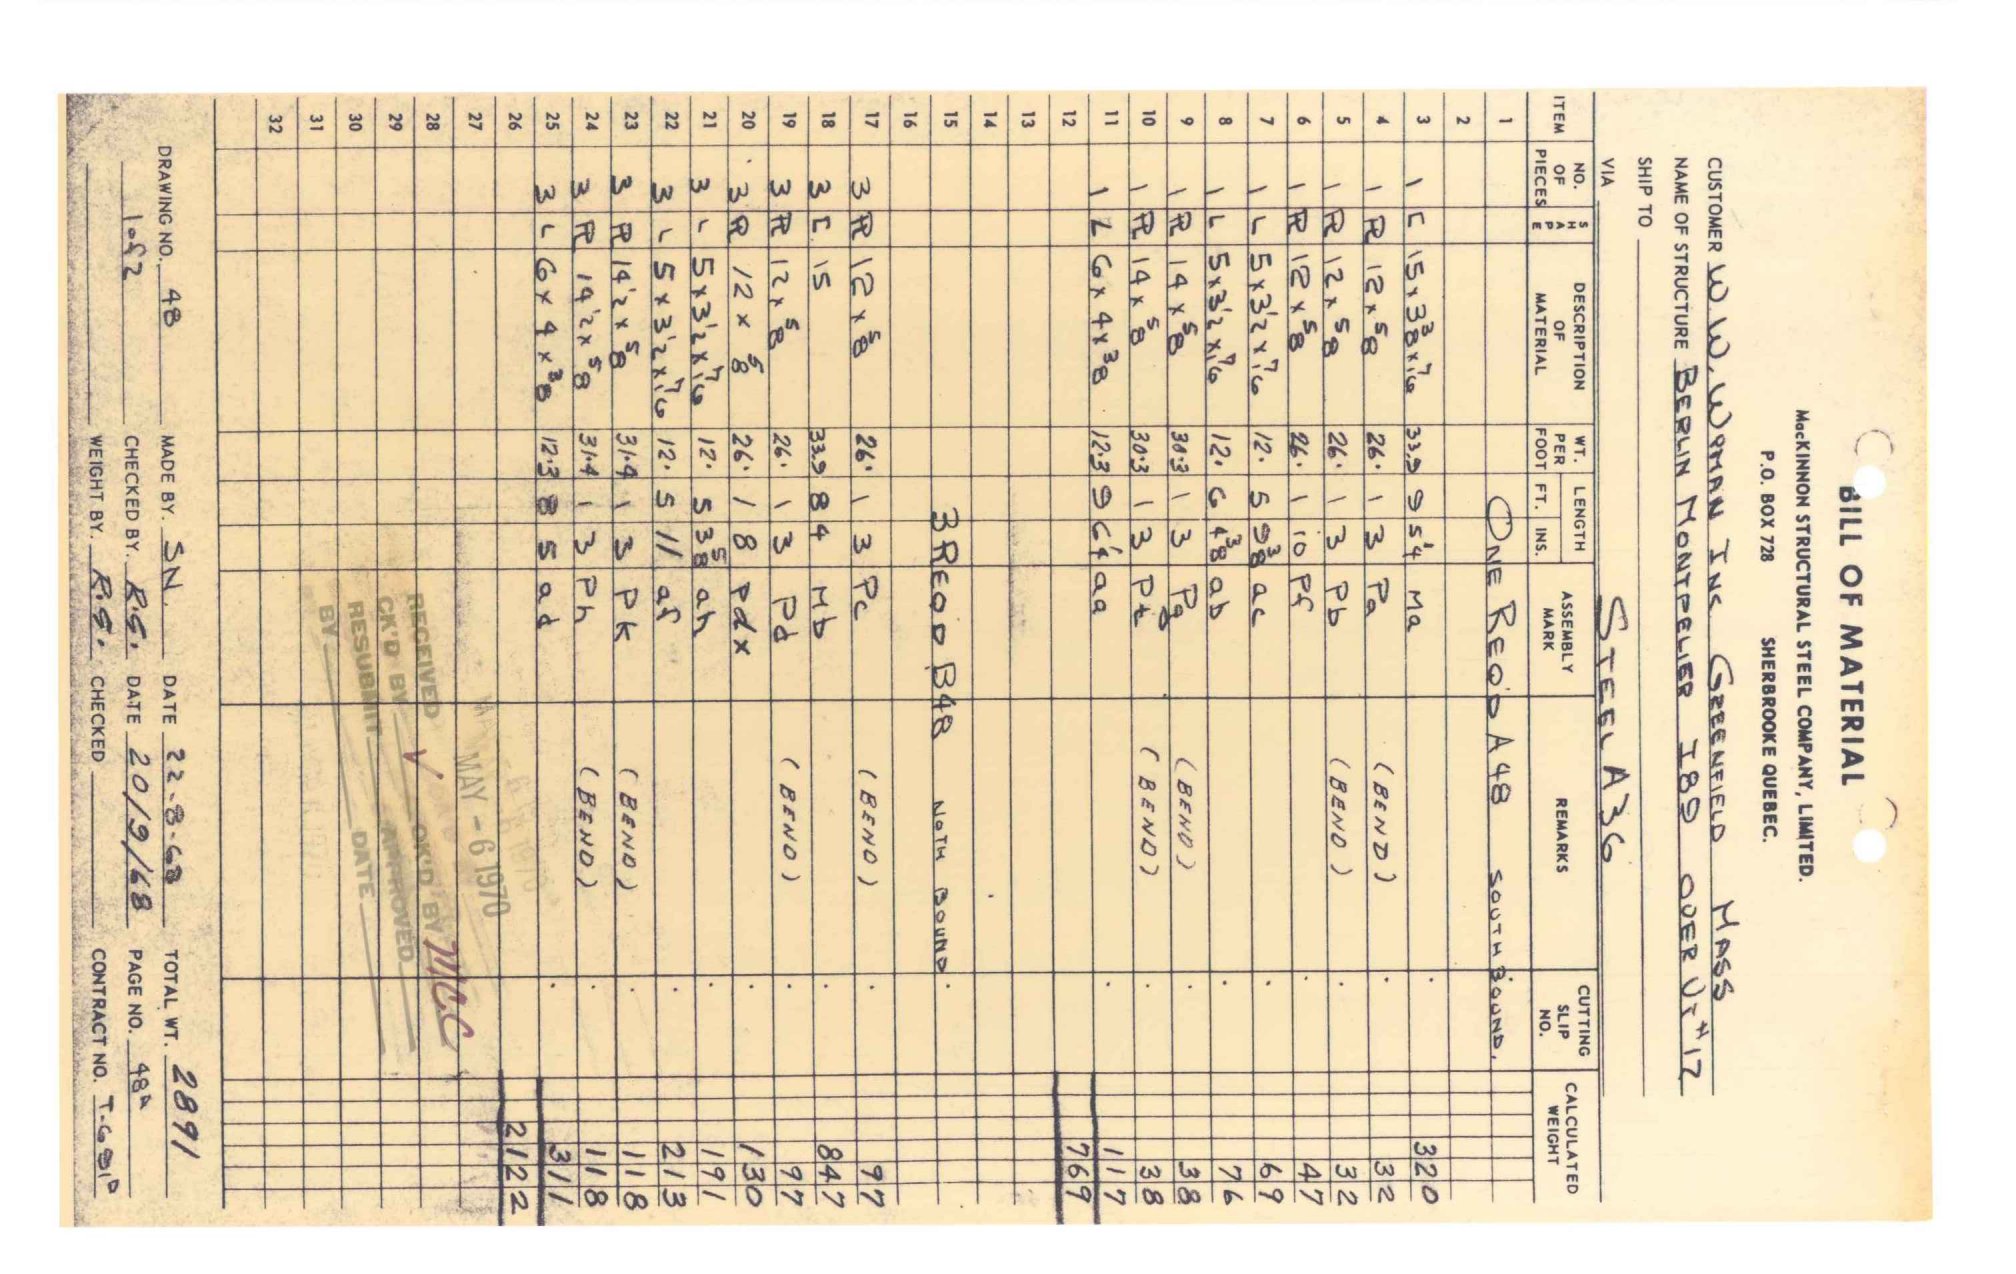 BILL OF MATERIAL
MacKINNON STRUCTURAL STEEL COMPANY, LIMITED.
P.O. BOX 728 SHERBROOKE QUEBEC.
CUSTOMER W.W. WYMAN INC GREENFIELD MASS
NAME OF STRUCTURE BERLIN MONTPELIER I89 OVER VT #12
SHIP TO
VIA STEEL A36
ITEM NO. OF PIECES SHAPE DESCRIPTION OF MATERIAL WT. PER FOOT LENGTH FT. INS. ASSEMBLY MARK REMARKS CUTTING SLIP NO. CALCULATED WEIGHT
1 ONE REQD A48 SOUTH BOUND.
2
3 1 [ 15x3 3/8x7/16 33.9 9 5 1/4 Ma 320
4 1 PL 12x5/8 26. 1 3 Pa (BEND) 32
5 1 PL 12x5/8 26. 1 3 Pb (BEND) 32
6 1 PL 12x5/8 26. 1 10 Pf 47
7 1 L 5x3 1/2x7/16 12. 5 9 3/8 ac 69
8 1 L 5x3 1/2x7/16 12. 6 4 3/8 ab 76
9 1 PL 14x5/8 30.3 1 3 Pg (BEND) 38
10 1 PL 14x5/8 30.3 1 3 Pt (BEND) 38
11 1 L 6x4x3/8 12.3 9 6 1/4 aa 117
12 769
13
14
15 3 REQD B48 NOTH BOUND
16
17 3 PL 12x5/8 26. 1 3 Pc (BEND) 97
18 3 [ 15 33.9 8 4 Mb 847
19 3 PL 12x5/8 26. 1 3 Pd (BEND) 97
20 3 PL 12x5/8 26. 1 8 Pdx 130
21 3 L 5x3 1/2x7/16 12. 5 3 5/8 ah 191
22 3 L 5x3 1/2x7/16 12. 5 11 af 213
23 3 PL 14 1/2x5/8 31.4 1 3 Pk (BEND) 118
24 3 PL 14 1/2x5/8 31.4 1 3 Ph (BEND) 118
25 3 L 6x4x3/8 12.3 8 5 ad 311
26 2122
27
28
29
30
31
32
MAY - 6 1970
RECEIVED
CK'D BY OK'D BY MCC
RESUBMIT APPROVED
BY DATE
DRAWING NO. 48 MADE BY. SN. DATE 22-8-68 TOTAL WT. 2891
1 of 2 CHECKED BY. R.S. DATE 20/9/68 PAGE NO. 48A
WEIGHT BY. R.S. CHECKED CONTRACT NO.